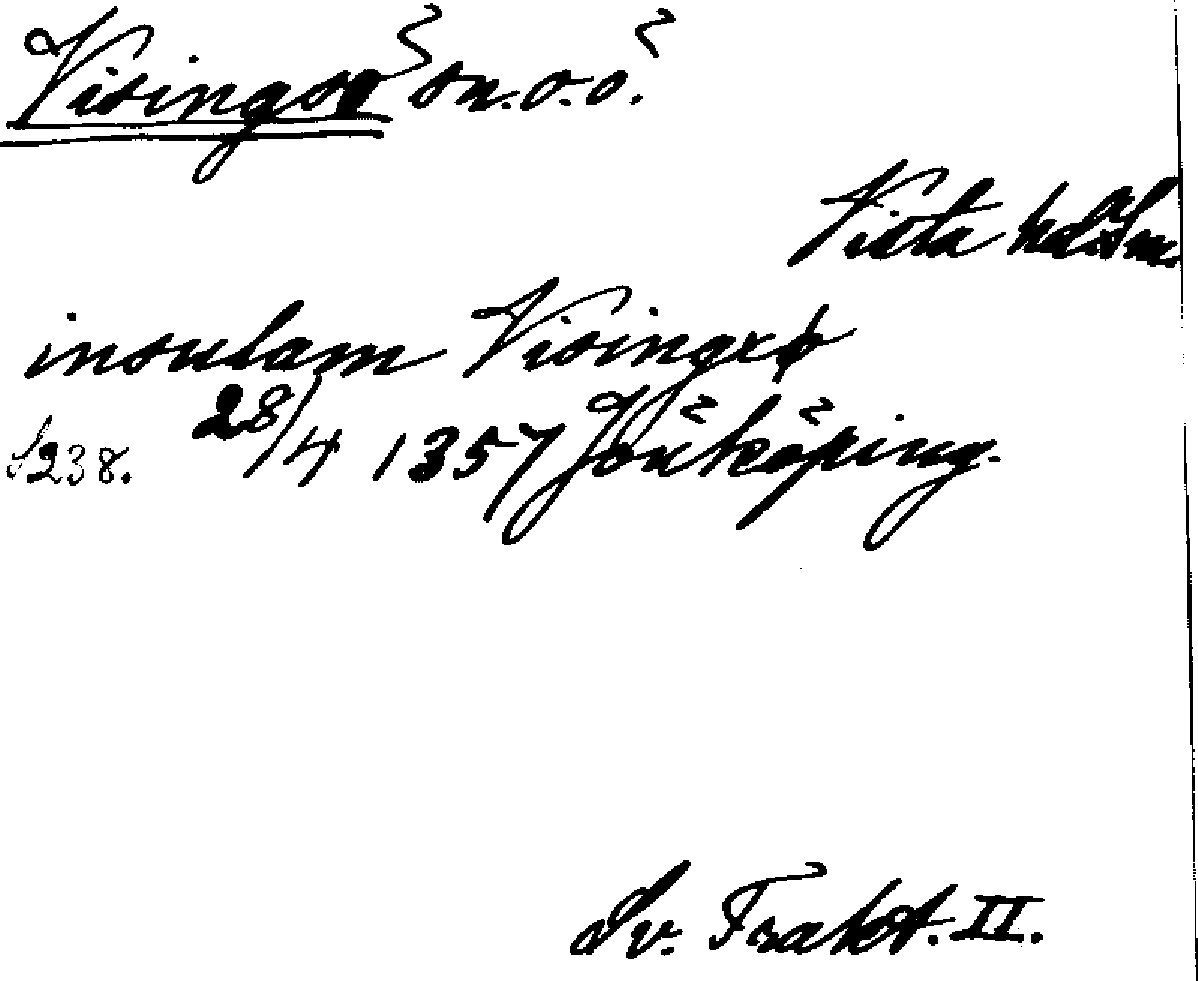 Visingsö sn. o. ö.
Vista hd. Sm.
insulam Visingxø
S 238. 28/4 1357 Jönköping.
Sv. Trakt. II.